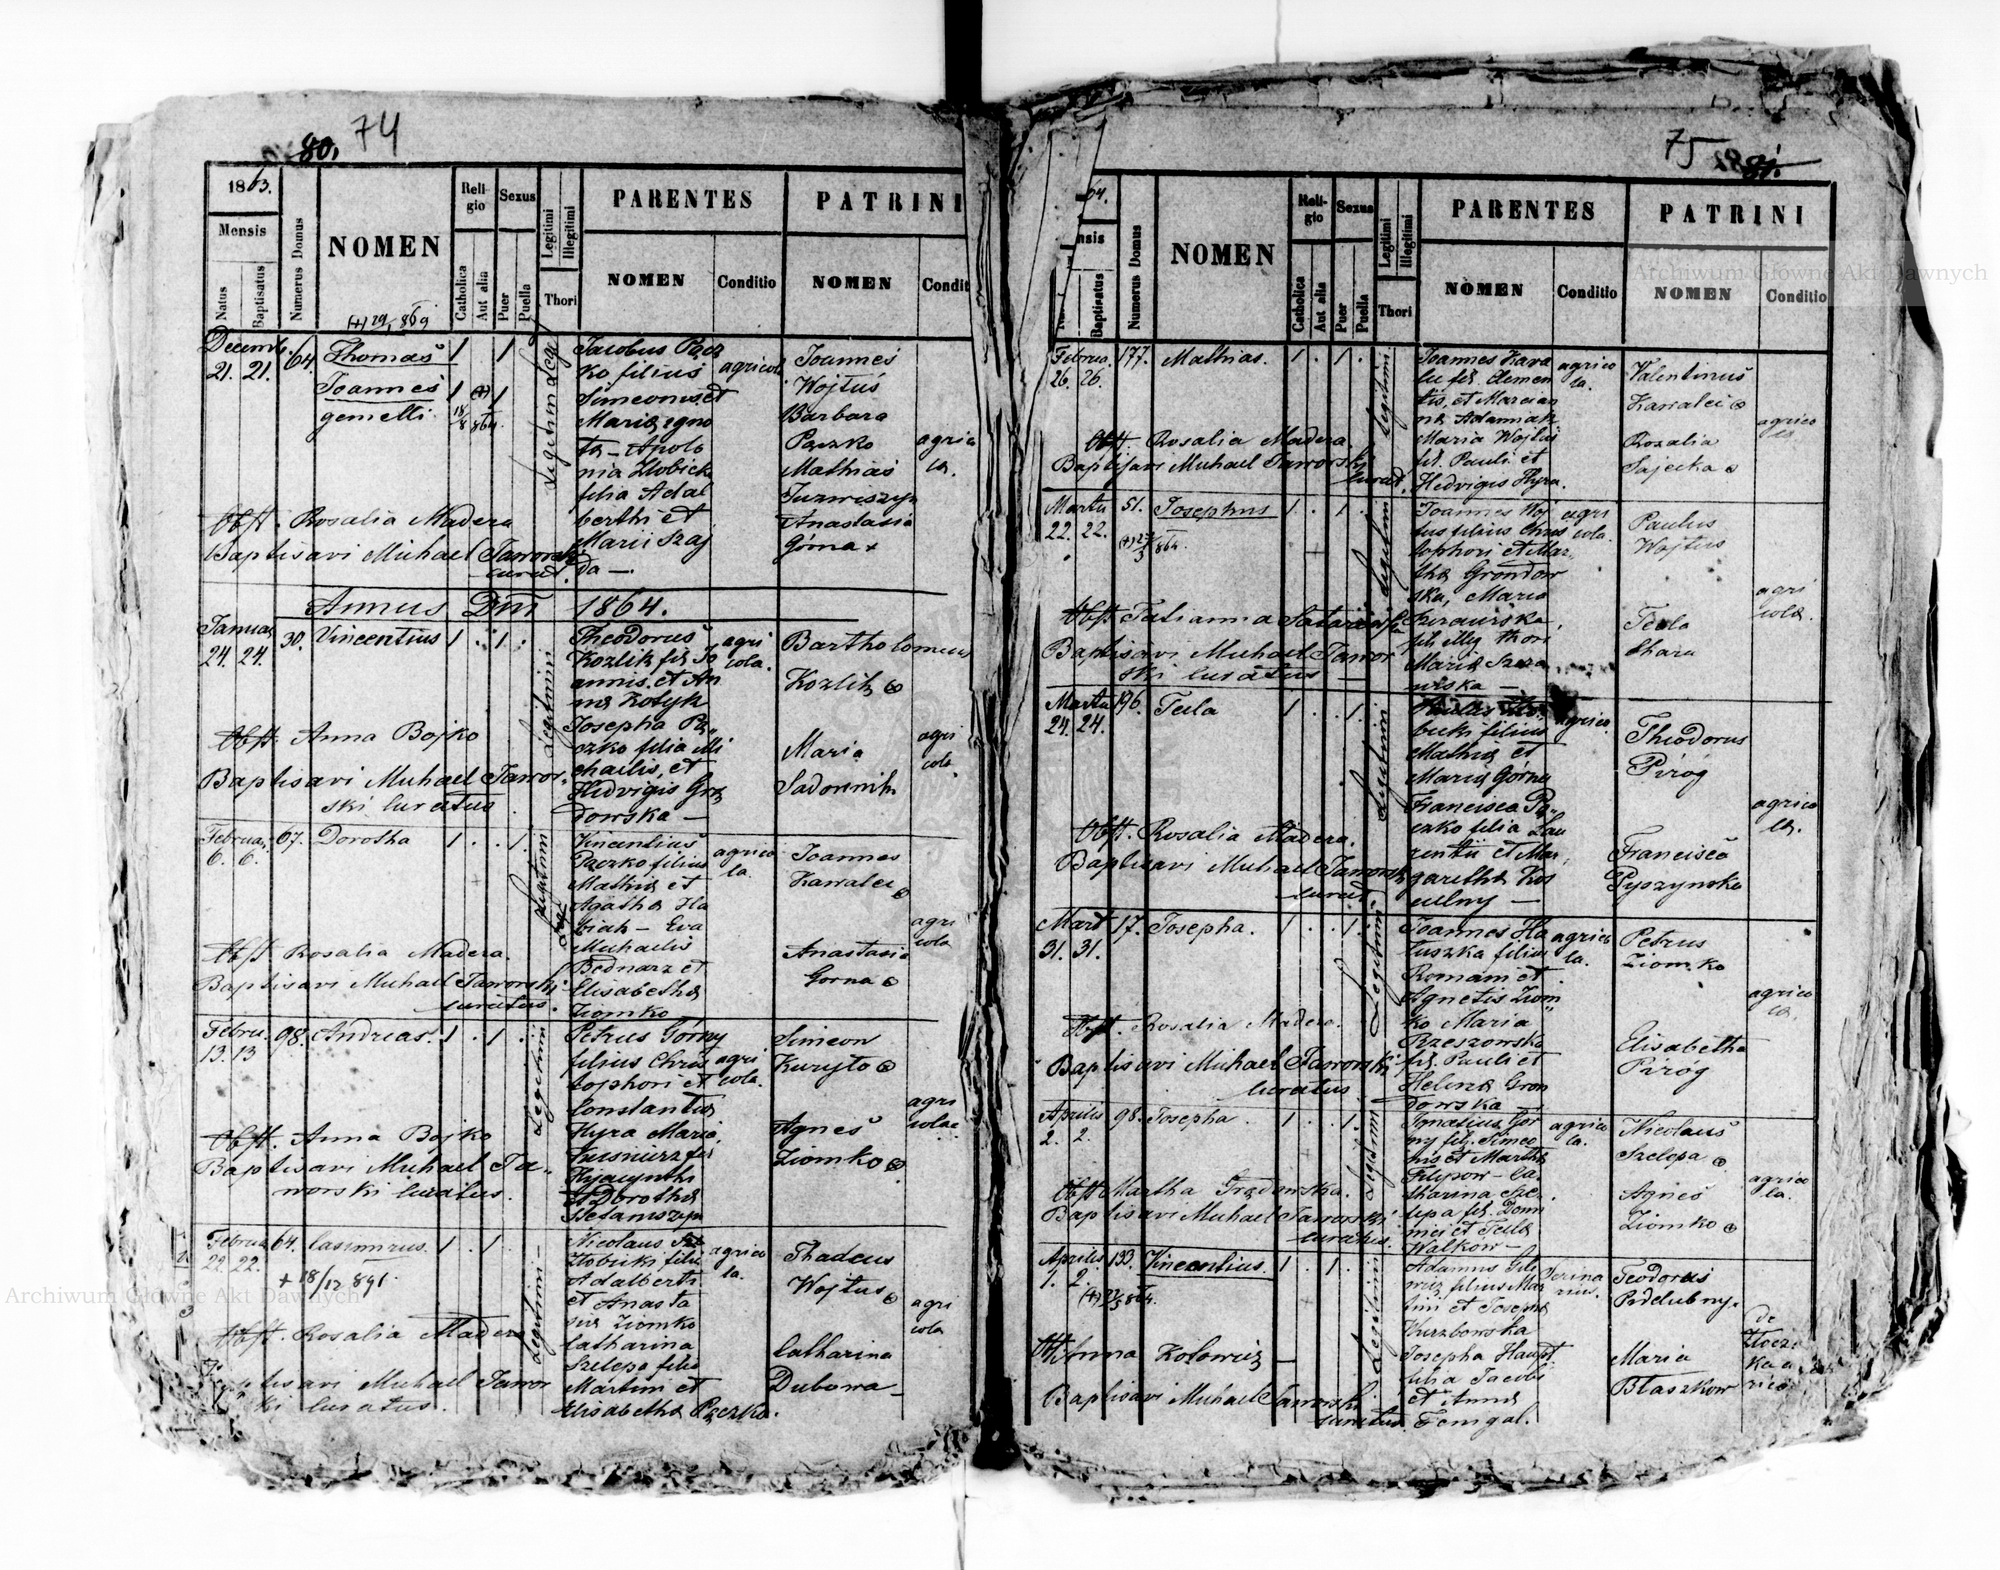 80. 74
1863.
Mensis
Natus
Baptisatus
Numerus Domus
NOMEN
(+) 29/1 869
Reli-
gio
Catholica
Aut alia
Sexus
Puer
Puella
Legitimi
Illegitimi
Thori
PARENTES
NOMEN
Conditio
PATRINI
NOMEN
Condit
Decemb. 64. Thomas 1 1
21. 21.
Joannes 1 (+) 1
gemelli 18/8 864.
Jacobus Pacz
ko filius
Simeonis et
Maria igno
ta - Apolo
nia Zlobick
filia Adal
berthi et
Marii Szaj
da —
agricola
Joannes
Wojtuś
Barbara
Paczko
Mathias
Anastasia
Górna +
agrico
la.
Obst. Rosalia Madera
Baptisavi Michael Jaworski
curat.
Annus Dni 1864.
Januar 30. Vincentius 1 . 1 .
24. 24.
Legitimi
Theodorus
Kozlik fil Jo
annis et An
na Kotyk
Josepha Pa
czko filia Mi
chailis, et
Hedvigis Grą
dowska —
agri
cola.
Bartholomeus
Kozlik
Maria
Sadownik
agri
cola
Obst. Anna Bojko
Baptisavi Michael Jawor
ski curatus
Februa. 67. Dorotha 1 . . 1.
6. 6.
Vincentius
Paczko filius
Mathia et
Agatha Ha
biak - Eva
Michaelis
Bednarz et
Elisabetha
Ziomko
agrico
la.
Joannes
Kawalec
Anastasia
Gorna
agri
cola
Obst. Rosalia Madera.
Baptisavi Michael Jaworski
curatus.
Februa. 98. Andreas. 1 . 1 .
13. 13
Legitimi
Petrus Górny
filius Chris
tophori et
Constantia
Hyra Maria,
Hyacynthi
Dorotha
agri
cola.
Simeon
Kuryło
Agnes
Ziomko
agri
cola
Obst. Anna Bojko
Baptisavi Michael Ja-
worski curatus.
Februa 64. Casimirus. 1 . 1 .
22. 22.
+ 18/12 891.
Legitimi
Nicolaus
Zlobicki filii
Adalberti
et Anasta
sia Ziomko
Catharina
Szelepa filia
Martini et
Elisabetha Paczko.
agrico
la.
Thadeus
Wojtus
Catharina
Dubowa
agri
cola
Obst. Rosalia Madera
Baptisavi Michael Jawor
ski curatus.
75 81.
64.
nsis
Baptisatus
Numerus Domus
NOMEN
Reli-
gio
Catholica
Aut alia
Sexus
Puer
Puella
Legitimi
Illegitimi
Thori
PARENTES
NOMEN
Conditio
PATRINI
NOMEN
Conditio
Februa. 177. Mathias. 1 . 1 .
26. 26.
Legitimi
Joannes Kawa
lec fil. Clemen
tis, et Marcian
na Adamiak
Maria Wojtuś
fil. Pauli et
Hedvigis Hyra.
agrico
la.
Valentinus
Kawalec
Rozalia
Sajecka
agrico
la
Obst. Rosalia Madera.
Baptisavi Michael Jaworski
curat.
Martii 51. Josephus 1 . 1 .
22. 22.
(+) 27/3 864.
Legitimi
Joannes Woj
tus filius Chris
tophori et Mar
tha Grondow
ska, Maria
Maria Szcza
wiska —
agri
cola.
Paulus
Wojtus
Tecla
Shara
agri
cola.
Obst. Tatianna
Baptisavi Michael Jawor
ski curatus —
Martii 196. Tecla 1 . . 1.
24. 24.
Legitimi
bicki filius
Mathia et
Maria Górny
Francisca Pa
czko filia Lau
rentii et Mar
garetha Kos
cielny —
agrico.
Theodorus
Pirog
Francisca
Pyszynska
agrico
la.
Obst. Rosalia Madera.
Baptisavi Michael Jaworski
curat
Mart 17. Josepha. 1 . . 1.
31. 31.
Legitimi
Joannes Ha
luszka filius
Romani et
Agnetis Ziom
ko Maria
Rzeszowska
fil. Pauli et
Helena Gron
dowska
agrico
la.
Petrus
Ziomko
Elisabetha
Pirog
agrico
la.
Obst. Rosalia Madera.
Baptisavi Michael Jaworski
curatus
Aprilis 98. Josepha . 1 . . 1.
2. 2.
Legitimi
Ignatius Gór
ny fil. Simeo
nis et Martha
Filipow - Ca
tharina Sze
lepa fil. Domi
nici et Tecla
Walkow —
agrico
la.
Nicolaus
Szelepa
Agnes
Ziomko
agrico
la.
Obst. Martha Grądowska.
Baptisavi Michael Jaworski
curatus.
Aprilis 133. Vincentius. 1 . 1 .
1. 2.
Legitimi
filius Mar
tini et Josepha
Kurzbowska
Josepha Haupt
filia Jacobi
et Anna
Fengal.
Teodorus
Prdelubny.
Maria
Błaszkow
Obst. Anna Kotowicz —
Baptisavi Michael Jaworski
curatus
Archiwum Główne Akt Dawnych
Archiwum Główne Akt Dawnych